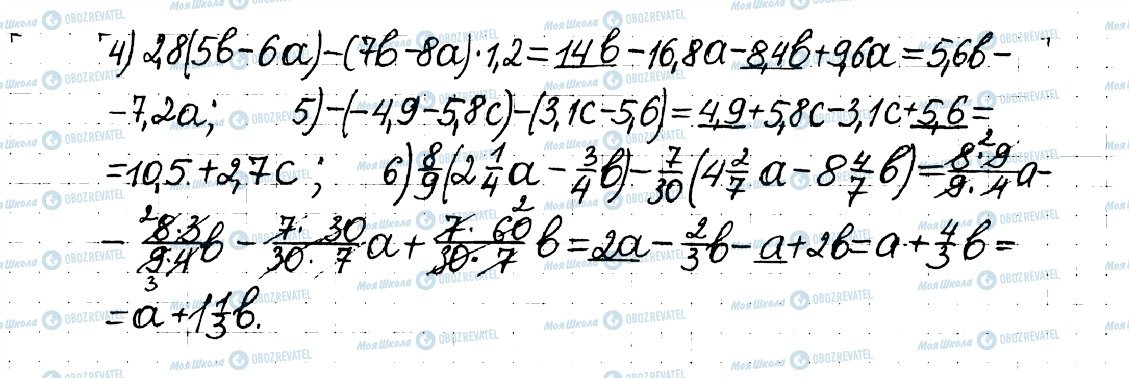 4) 2,8(5b-6a)-(7b-8a)·1,2=14b-16,8a-8,4b+9,6a=5,6b-
-7,2a; 5)-(-4,9-5,8c)-(3,1c-5,6)=4,9+5,8c-3,1c+5,6=
=10,5+2,7c; 6) 8/9(2 1/4 a - 3/4 b)-7/30(4 2/7 a - 8 4/7 b)=8·9/9·4 a-
- 8·3/9·4 b - 7·30/30·7 a + 7·60/30·7 b = 2a - 2/3 b - a + 2b = a + 4/3 b =
= a + 1 1/3 b.